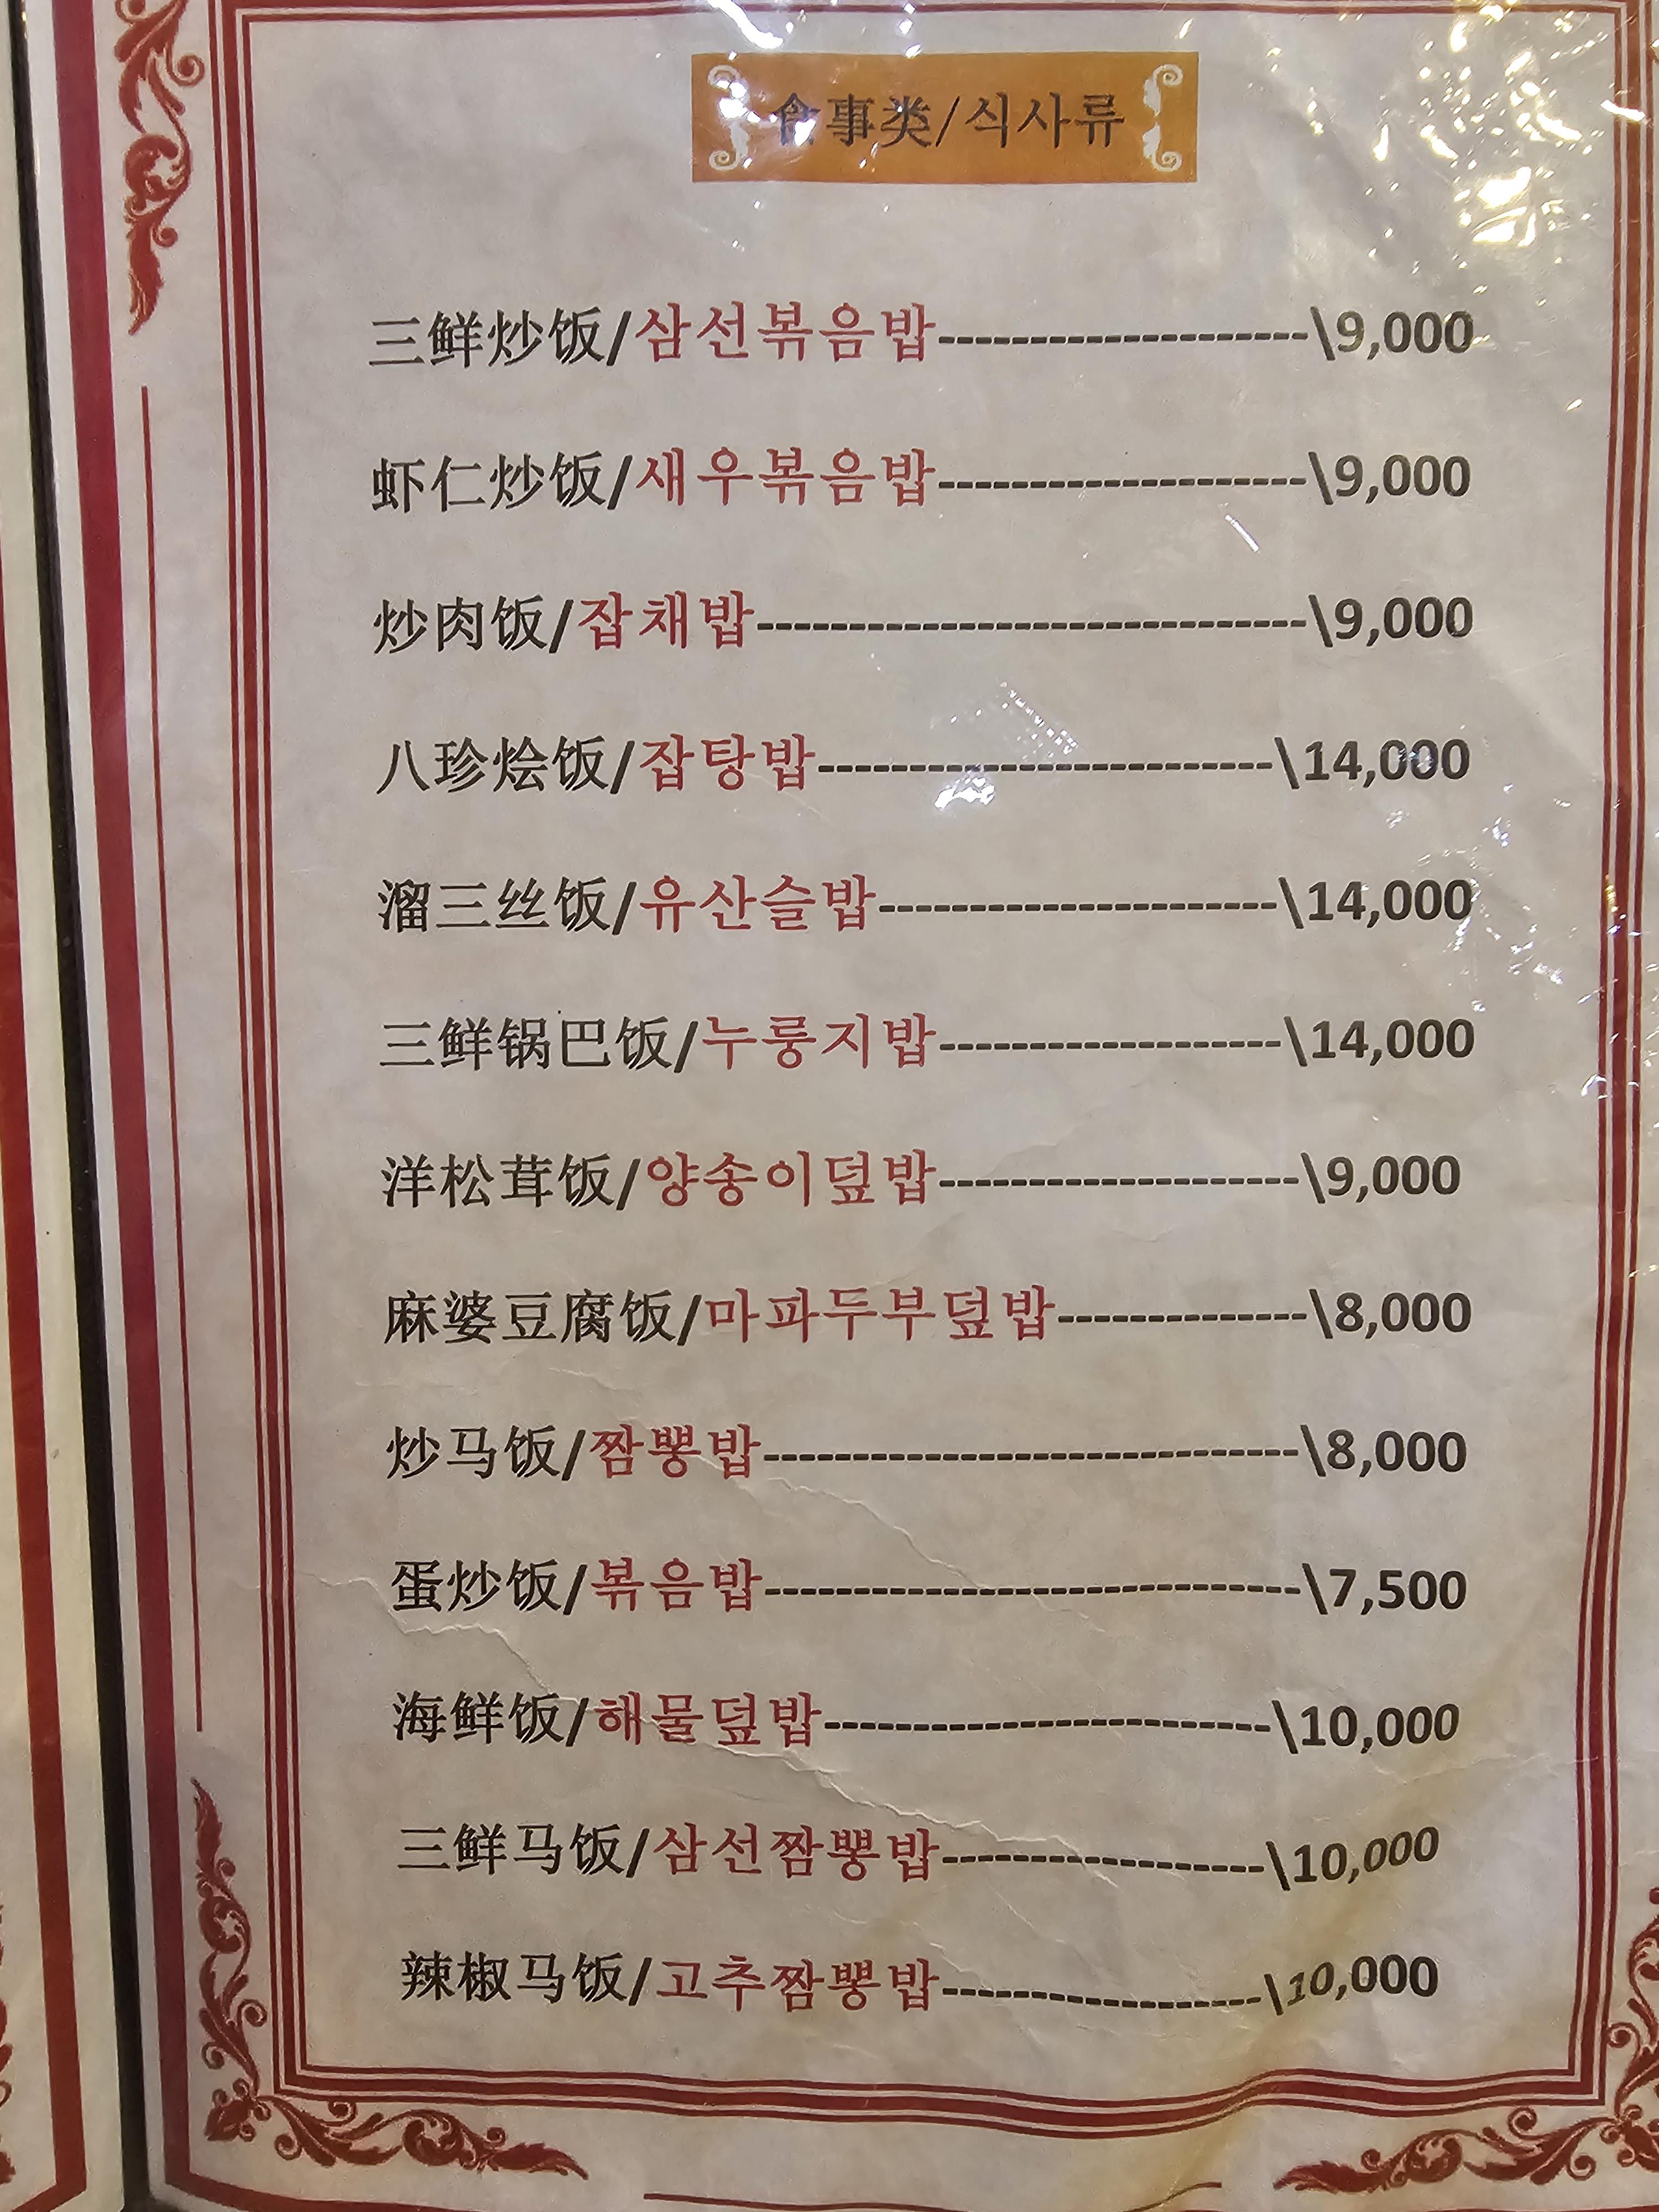 食事类/식사류
三鲜炒饭/삼선볶음밥-------------------\9,000
虾仁炒饭/새우볶음밥-------------------\9,000
炒肉饭/잡채밥----------------------------\9,000
八珍烩饭/잡탕밥-----------------------\14,000
溜三丝饭/유산슬밥--------------------\14,000
三鲜锅巴饭/누룽지밥-----------------\14,000
洋松茸饭/양송이덮밥------------------\9,000
麻婆豆腐饭/마파두부덮밥-------------\8,000
炒马饭/짬뽕밥---------------------------\8,000
蛋炒饭/볶음밥---------------------------\7,500
海鲜饭/해물덮밥-----------------------\10,000
三鲜马饭/삼선짬뽕밥-----------------\10,000
辣椒马饭/고추짬뽕밥-----------------\10,000